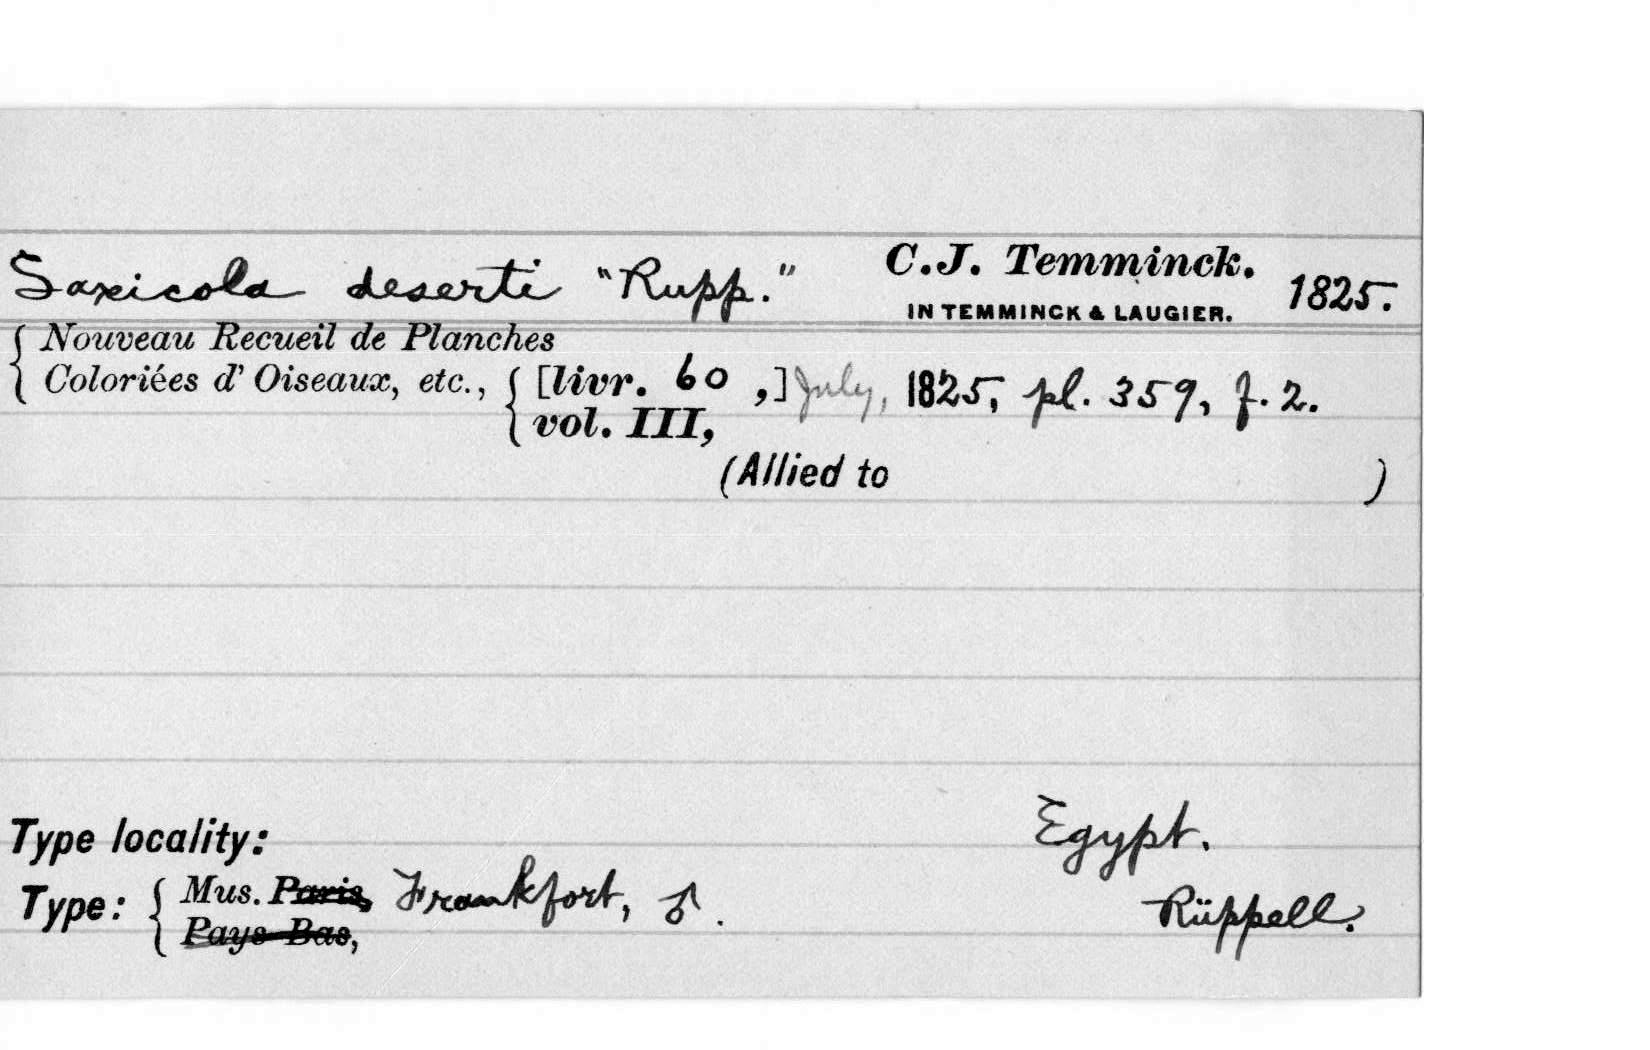 Saxicola deserti "Rupp." C.J. Temminck. 1825.
IN TEMMINCK & LAUGIER.
Nouveau Recueil de Planches
Coloriées d' Oiseaux, etc., [livr. 60 ,] July, 1825, pl. 359, f. 2.
vol. III,
(Allied to )
Type locality: Egypt.
Type: Mus. Paris, Frankfort, ♂. Rüppell.
Pays-Bas,